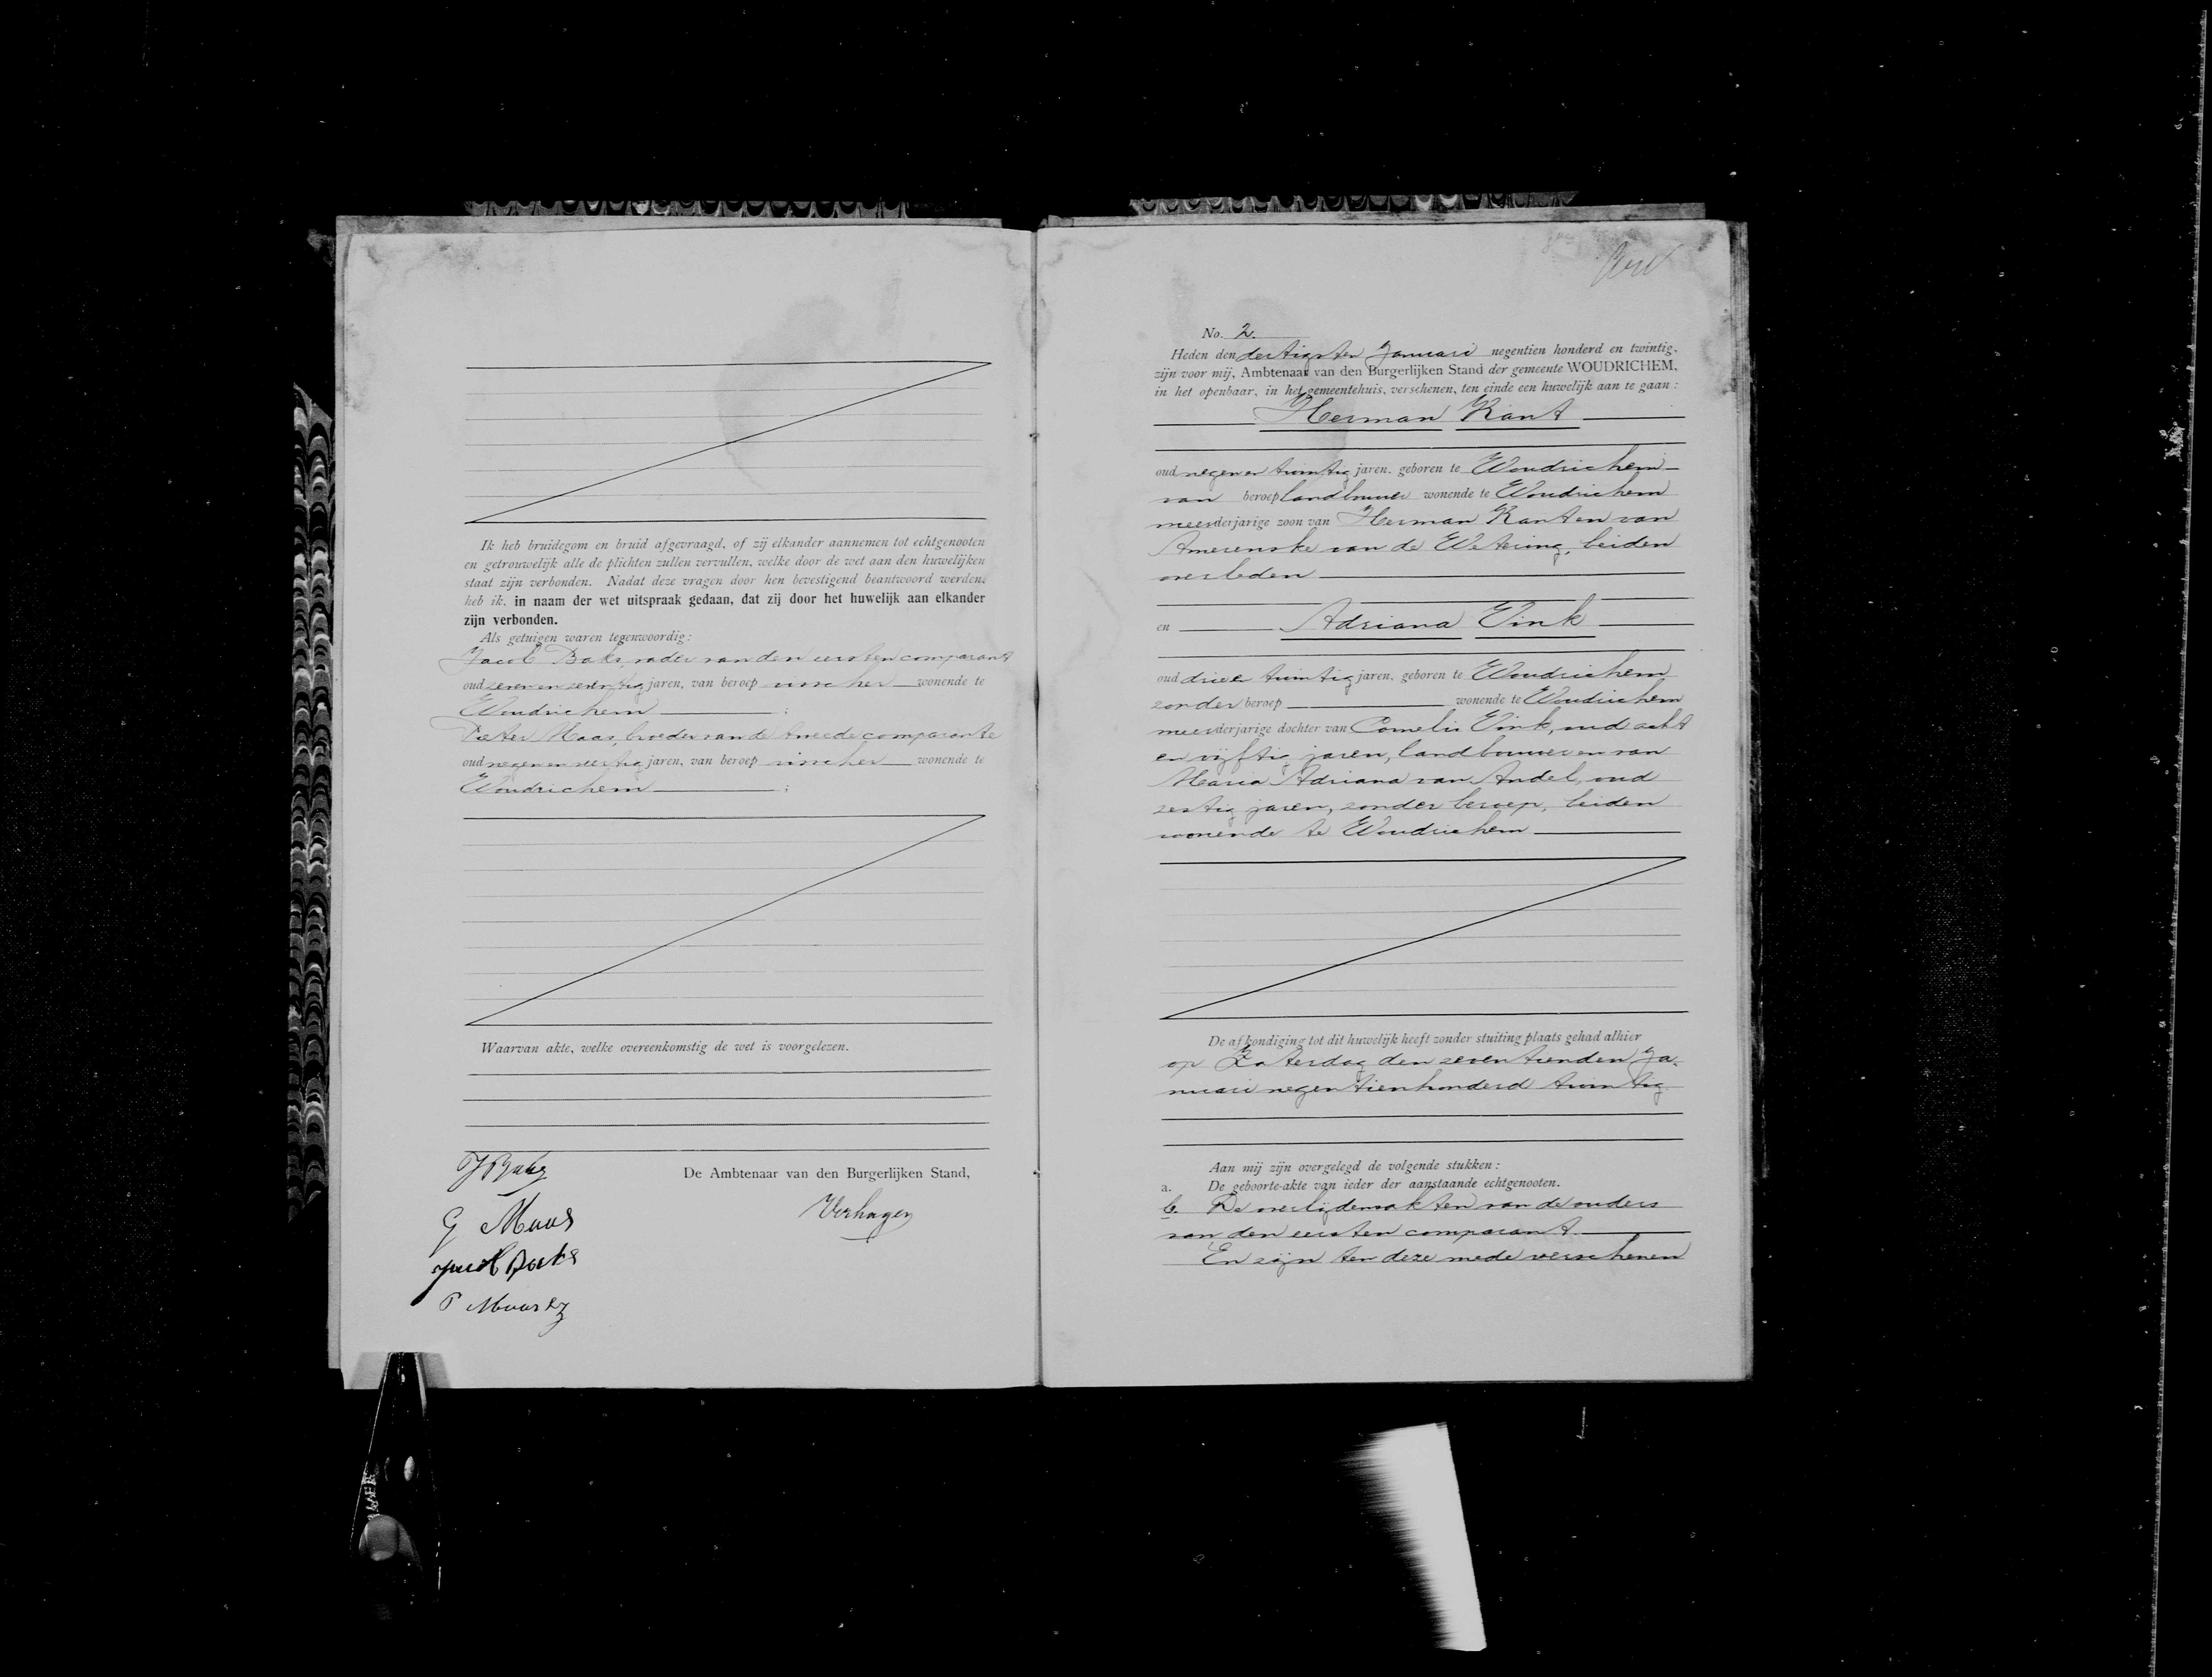 Ik heb bruidegom en bruid afgevraagd, of zij elkander aannemen tot echtgenooten
en getrouwelijk alle de plichten zullen vervullen, welke door de wet aan den huwelijken
staat zijn verbonden. Nadat deze vragen door hen bevestigend beantwoord werden,
heb ik, in naam der wet uitspraak gedaan, dat zij door het huwelijk aan elkander
zijn verbonden.
Als getuigen waren tegenwoordig:
Jacob Baks, vader van den eersten comparant
oud zeven en zeventig jaren, van beroep visscher wonende te
Woudrichem ;
Pieter Maas, broeder van de tweede comparante
oud negen en dertig jaren, van beroep visscher wonende te
Woudrichem ;
Waarvan akte, welke overeenkomstig de wet is voorgelezen.
De Ambtenaar van den Burgerlijken Stand,
Verhagen
G Maas
Jacob Baks
P Maas
No. 2.
Heden den dertigsten Januari negentien honderd en twintig,
zijn voor mij, Ambtenaar van den Burgerlijken Stand der gemeente WOUDRICHEM,
in het openbaar, in het gemeentehuis, verschenen, ten einde een huwelijk aan te gaan :
Herman Kant
oud negen en twintig jaren, geboren te Woudrichem
van beroep landbouwer wonende te Woudrichem
meerderjarige zoon van Herman Kant en van
Amerenske van de Wetering, beiden
overleden
en Adriana Vink
oud drie en twintig jaren, geboren te Woudrichem
zonder beroep wonende te Woudrichem
meerderjarige dochter van Cornelis Vink, oud acht
en vijftig jaren, landbouwer en van
Maria Adriana van Andel, oud
zestig jaren, zonder beroep, beiden
wonende te Woudrichem
De afkondiging tot dit huwelijk heeft zonder stuiting plaats gehad alhier
op Zaterdag den zeventienden Ja-
nuari negentienhonderd twintig
Aan mij zijn overgelegd de volgende stukken :
a. De geboorte-akte van ieder der aanstaande echtgenooten.
b. De overlijdensakten van de ouders
van den eersten comparant.
En zijn ten deze mede verschenen